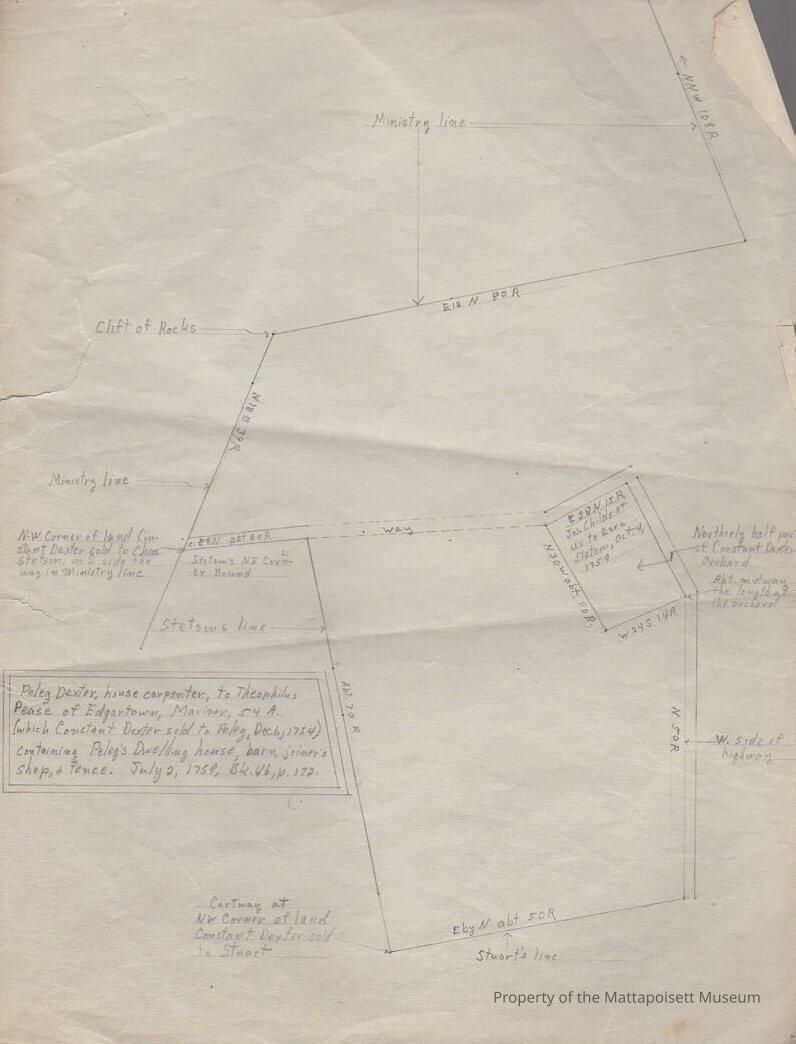 NNW 108R
Ministry line
E12 N 80R
Clift of Rocks
N18E 39R
Ministry line
way
E28N 15R
Jas. Childs et
ux to Ezra
Stetson, Oct. 4,
1759
N.W. Corner of land Con-
stant Dexter sold to
Stetson, on S side the
way in Ministry line
abt 60R
Stetson's NE Corn-
er Bound
Northerly half part
of Constant Dexter
Orchard
Abt. midway
the length of
the orchard
N30W abt.
W24S 14R
Stetson's line
Abt. 70 R
Peleg Dexter, house carpenter, to Theophilus
Pease of Edgartown, Mariner, 54 A.
(which Constant Dexter sold to Peleg, Dec. 6, 1754)
containing Peleg's Dwelling house, barn, joiner's
shop, & fence. July 2, 1759, Bk. 46, p. 172.
N 50R
W. side of
highway
Cartway at
NW Corner of land
Constant Dexter sold
to Stuart
E by N abt 50R
Stuart's line
Property of the Mattapoisett Museum